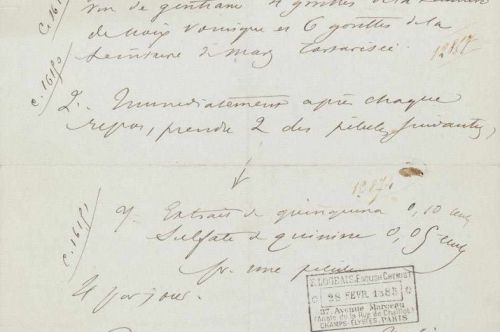 Vin de gentiane 4 gouttes de la
de noix vomique et 6 gouttes de la
teinture de Mars tartarisée.
12187
C.1618
C.16180
2. Immédiatement après chaque
repas, prendre 2 des pilules suivantes,
1217
C.16181
Extrait de quinquina 0,10 cent
Sulfate de quinine 0,05 cent
pr. une pilule
4 par jour.
ENGLISH CHEMIST
28 FEVR. 1883
37, Avenue Marceau
(Angle de la Rue de Chaillot)
CHAMPS-ELYSÉES, PARIS